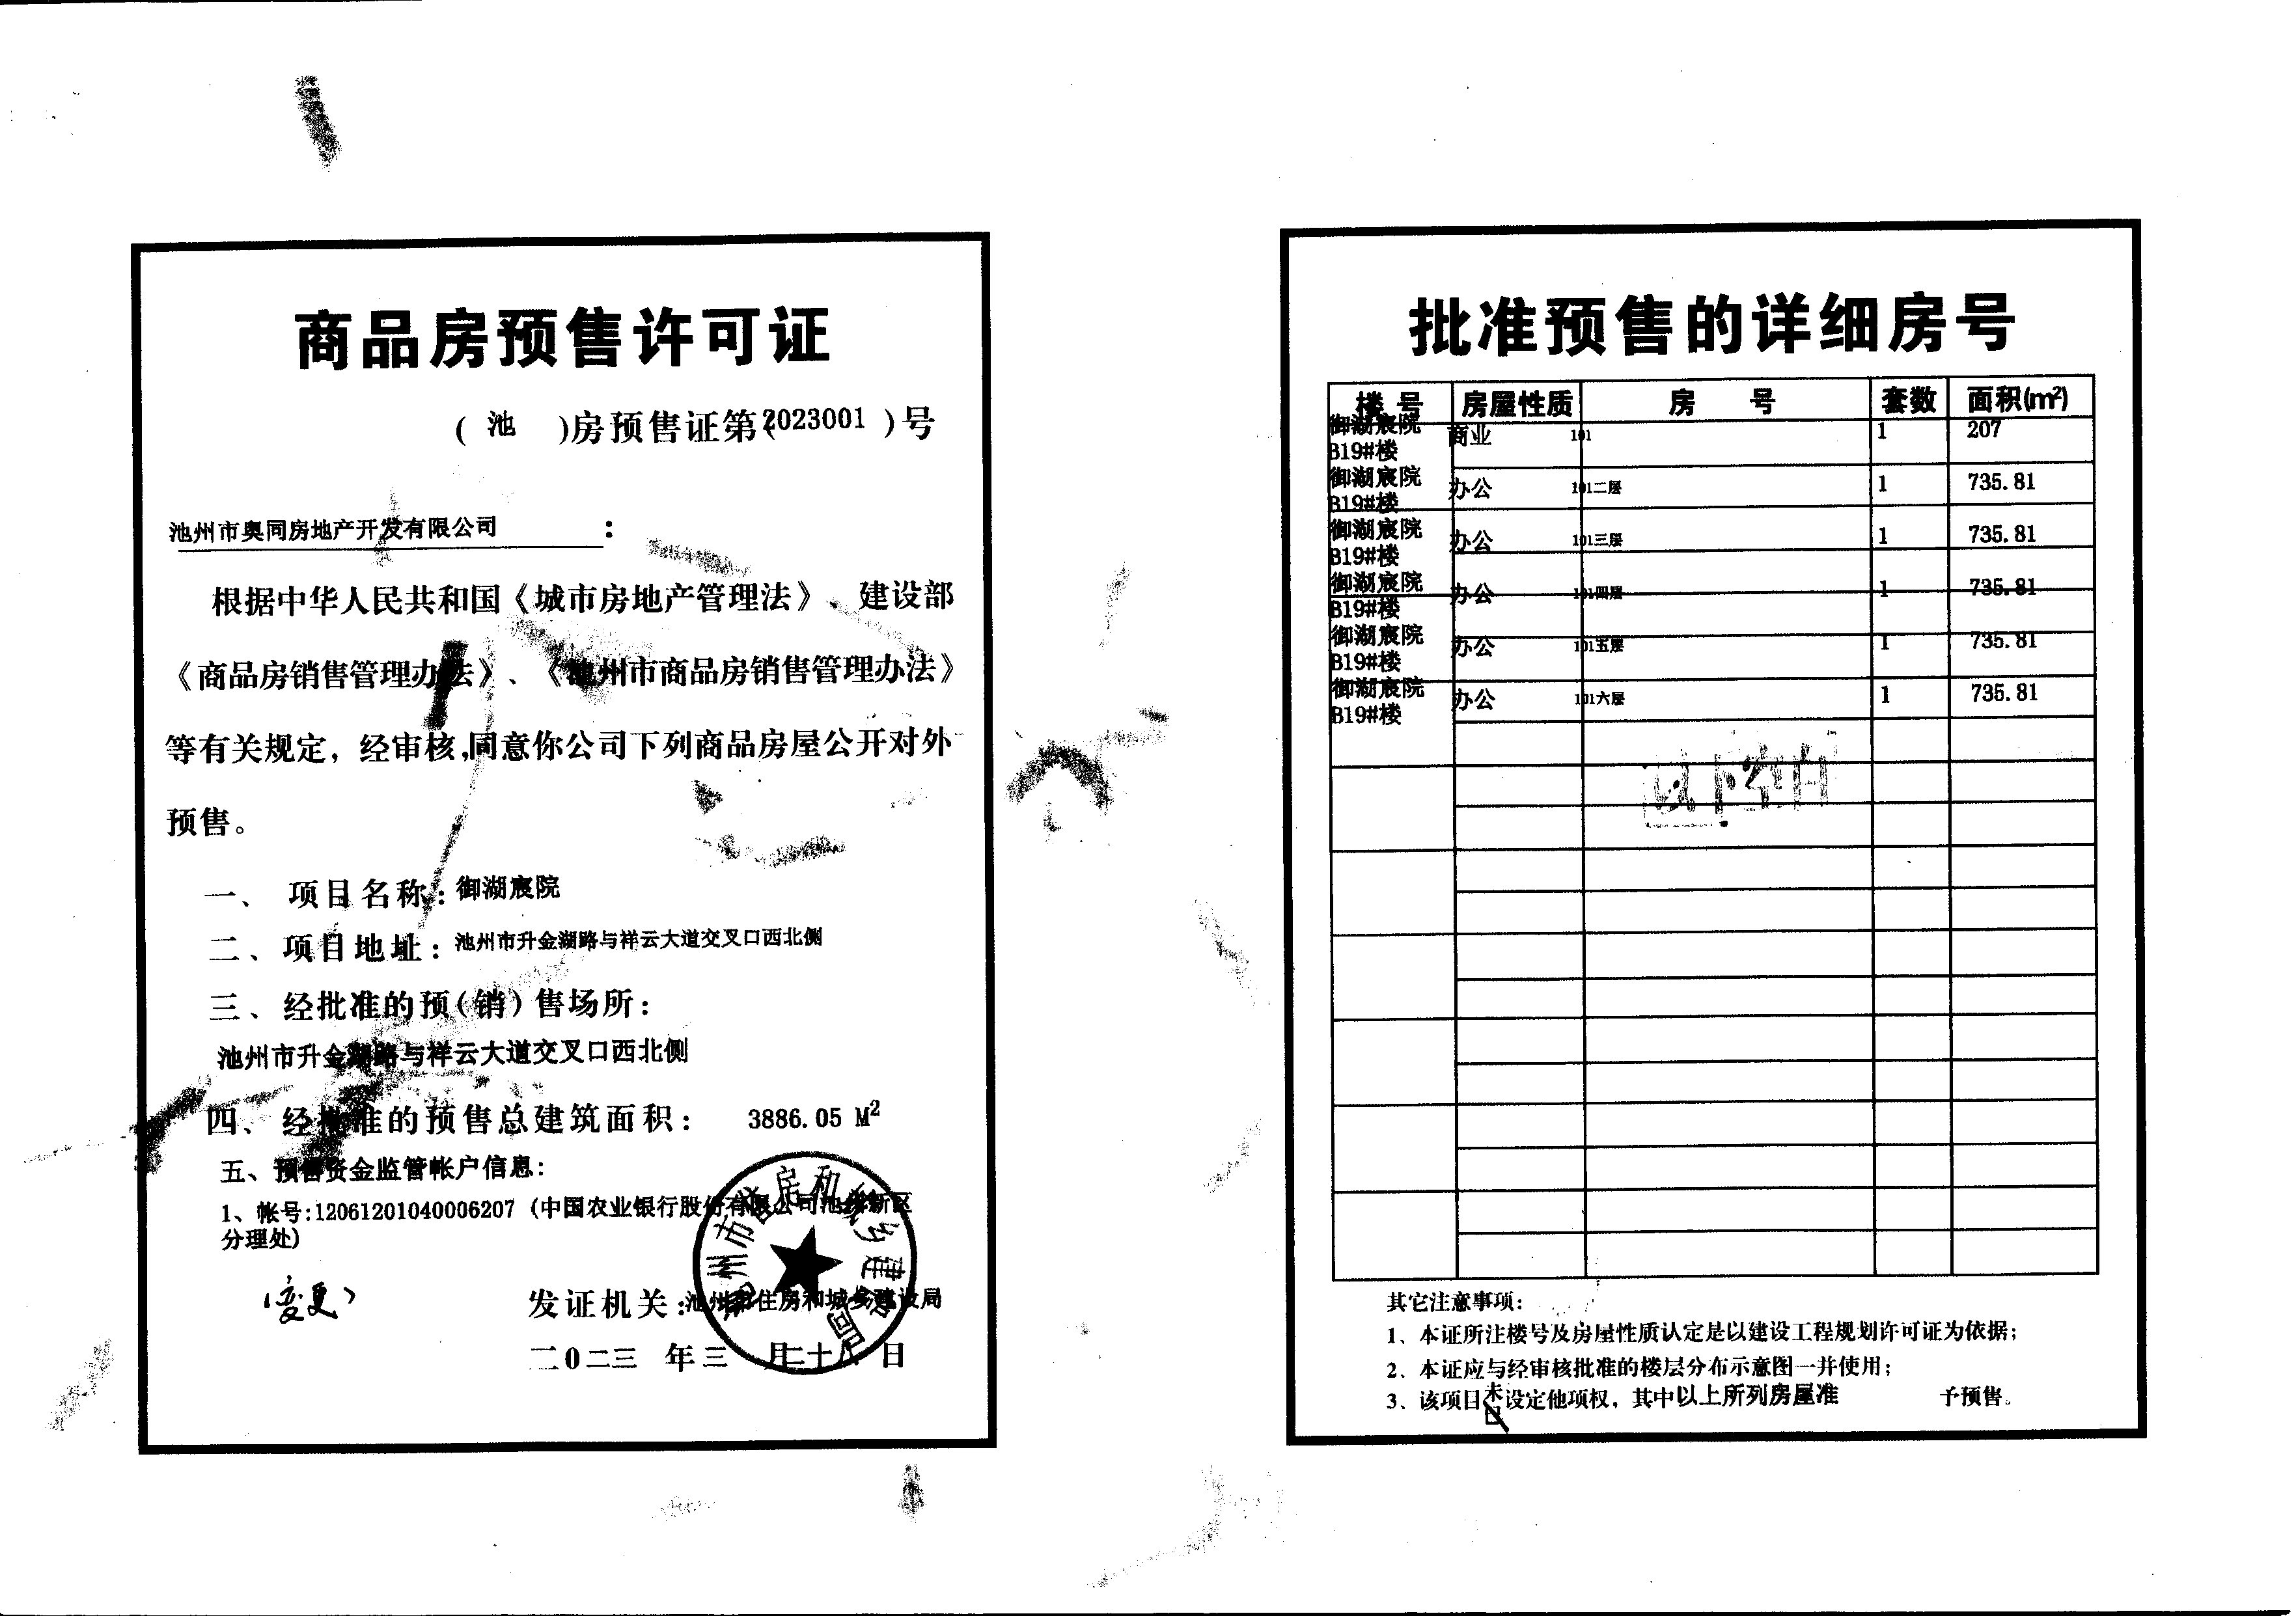 商品房预售许可证
( 池 )房预售证第(2023001 )号
池州市奥同房地产开发有限公司 :
根据中华人民共和国《城市房地产管理法》、建设部
《商品房销售管理办法》、《池州市商品房销售管理办法》
等有关规定，经审核,同意你公司下列商品房屋公开对外
预售。
一、 项目名称: 御湖宸院
二、项目地址: 池州市升金湖路与祥云大道交叉口西北侧
三、经批准的预(销)售场所:
池州市升金湖路与祥云大道交叉口西北侧
四、经批准的预售总建筑面积: 3886.05 M²
五、预售资金监管帐户信息:
1、帐号:12061201040006207 (中国农业银行股份有限公司池州新区
分理处)
(变更)
发证机关:池州市住房和城乡建设局
二0二三 年三 月二十八 日
池州市住房和城乡建设局
批准预售的详细房号
楼号 房屋性质 房 号 套数 面积(m²)
御湖宸院
B19#楼 商业 101 1 207
御湖宸院
B19#楼 办公 101二层 1 735.81
御湖宸院
B19#楼 办公 101三层 1 735.81
御湖宸院
B19#楼 办公 101四层 1 735.81
御湖宸院
B19#楼 办公 101五层 1 735.81
御湖宸院
B19#楼 办公 101六层 1 735.81
以下空白
其它注意事项:
1、本证所注楼号及房屋性质认定是以建设工程规划许可证为依据;
2、本证应与经审核批准的楼层分布示意图一并使用;
3、该项目未已设定他项权，其中以上所列房屋准 予预售。